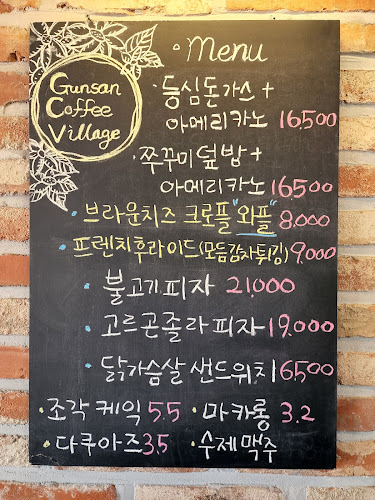 Gunsan
Coffee
Village
·Menu
·등심돈가스+
아메리카노 16.500
·쭈꾸미덮밥+
아메리카노 16.500
·브라운치즈 크로플"와플" 8.000
·프렌치후라이드(모듬감자튀김) 9.000
·불고기피자 21.000
·고르곤졸라피자 19.000
·닭가슴살 샌드위치 6.500
·조각케익 5.5 ·마카롱 3.2
·다쿠아즈 3.5 ·수제맥주